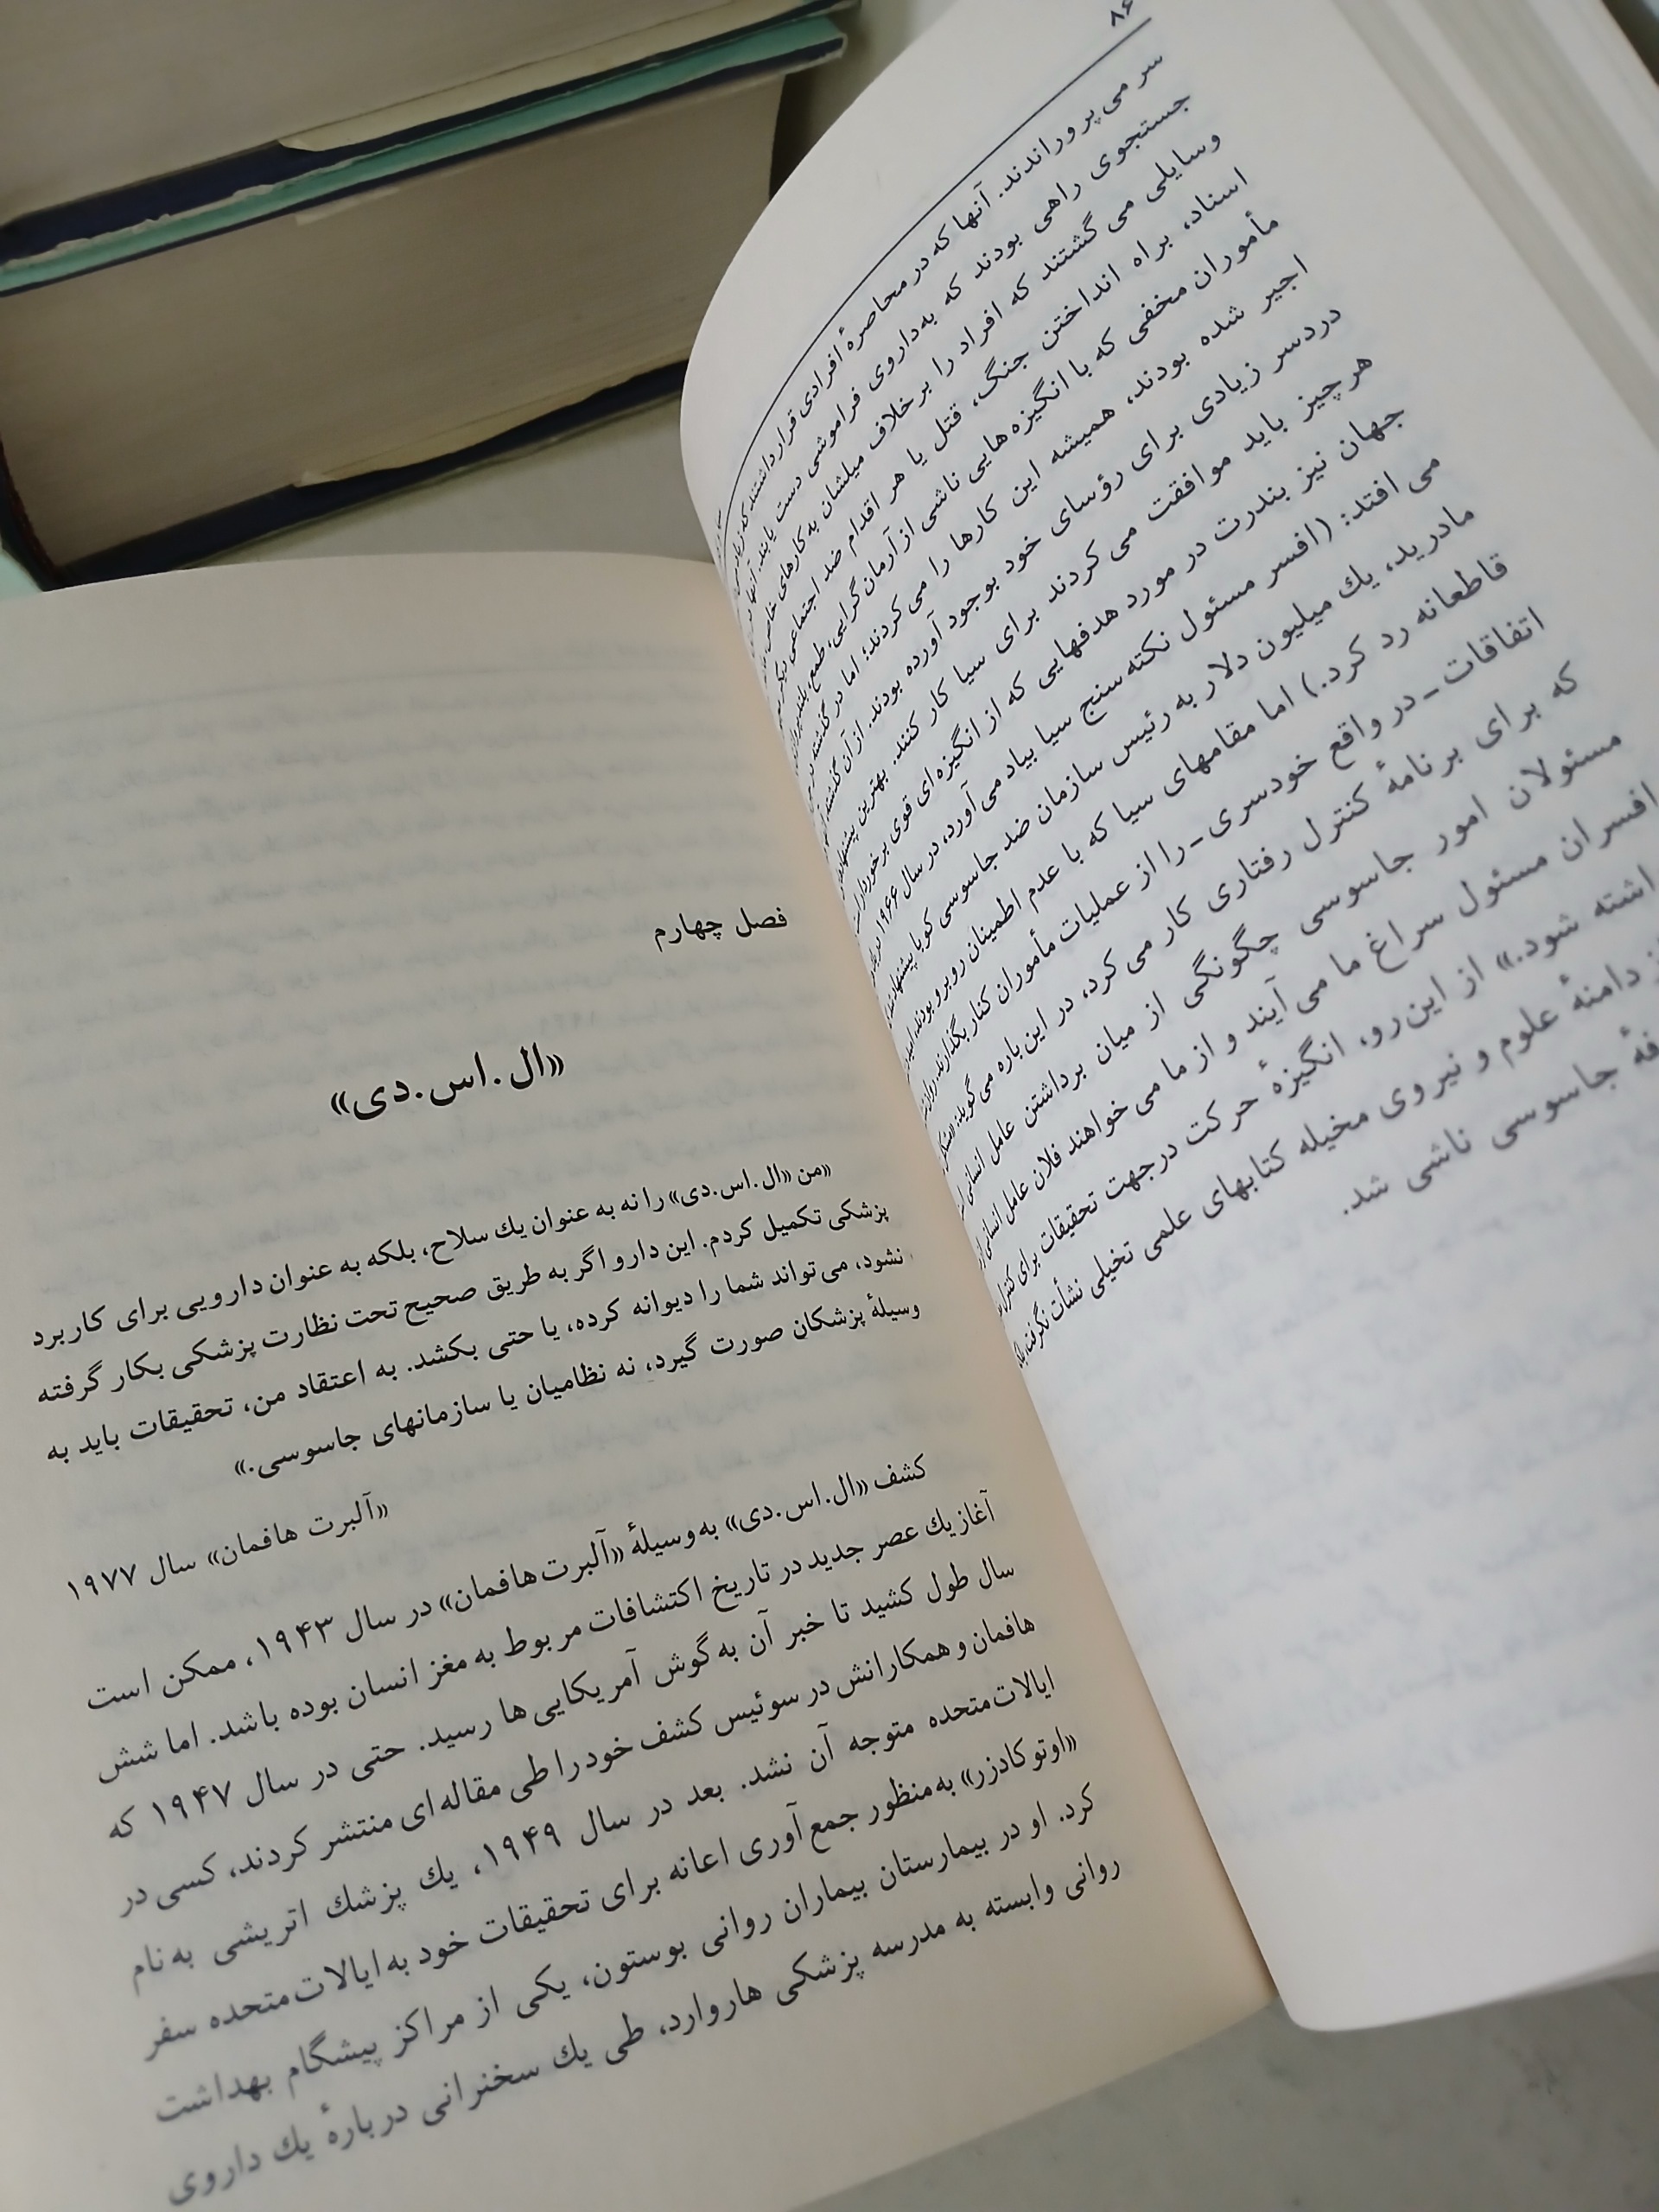 ۸۶
سر می‌پروراندند. آنها که در محاصرهٔ افرادی قرار داشتند که
جستجوی راهی بودند که به‌داروی فراموشی دست یابند. آنها
وسایلی می‌گشتند که افراد را برخلاف میلشان به کارهای خاص
اسناد، براه انداختن جنگ، قتل یا هر اقدام ضد اجتماعی دیگر
مأموران مخفی که با انگیزه‌هایی ناشی از آرمان‌گرایی، طمع،
اجیر شده بودند، همیشه این کارها را می‌کردند؛ اما در گذشته
دردسر زیادی برای رؤسای خود بوجود آورده بودند. از آن گذشته،
هرچیز باید موافقت می‌کردند برای سیا کار کنند. بهترین پیشنهادهای
جهان نیز بندرت در مورد هدفهایی که از انگیزه‌ای قوی برخوردارند
می‌افتد: (افسر مسئول نکته‌سنج سیا بیاد می‌آورد، در سال ۱۹۶۶
مادرید، یك میلیون دلار به رئیس سازمان ضد جاسوسی کوبا پیشنهاد
قاطعانه رد کرد.) اما مقامهای سیا که با عدم اطمینان روبرو بودند،
اتفاقات ـ در واقع خودسری ـ را از عملیات مأموران کنار بگذارند.
که برای برنامهٔ کنترل رفتاری کار می‌کرد، در این‌باره می‌گوید:
مسئولان امور جاسوسی چگونگی از میان برداشتن عامل انسانی
افسران مسئول سراغ ما می‌آیند و از ما می‌خواهند فلان عامل انسانی
اشته شود.» از این‌رو، انگیزهٔ حرکت درجهت تحقیقات برای کنترل
دامنهٔ علوم و نیروی مخیله کتابهای علمی تخیلی نشأت نگرفته،
جاسوسی ناشی شد.
فصل چهارم
«ال.اس.دی»
«من «ال.اس.دی» را نه به عنوان یك سلاح، بلکه به عنوان دارویی برای کاربرد
پزشکی تکمیل کردم. این دارو اگر به طریق صحیح تحت نظارت پزشکی بکار گرفته
نشود، می‌تواند شما را دیوانه کرده، یا حتی بکشد. به اعتقاد من، تحقیقات باید به
وسیلهٔ پزشکان صورت گیرد، نه نظامیان یا سازمانهای جاسوسی.»
«آلبرت هافمان» سال ۱۹۷۷
کشف «ال.اس.دی» به‌وسیلهٔ «آلبرت هافمان» در سال ۱۹۴۳، ممکن است
آغاز یك عصر جدید در تاریخ اکتشافات مربوط به مغز انسان بوده باشد. اما شش
سال طول کشید تا خبر آن به گوش آمریکایی‌ها رسید. حتی در سال ۱۹۴۷ که
هافمان و همکارانش در سوئیس کشف خود را طی مقاله‌ای منتشر کردند، کسی در
ایالات‌متحده متوجه آن نشد. بعد در سال ۱۹۴۹، یك پزشك اتریشی به‌نام
«اوتو کادزر» به‌منظور جمع‌آوری اعانه برای تحقیقات خود به ایالات‌متحده سفر
کرد. او در بیمارستان بیماران روانی بوستون، یکی از مراکز پیشگام بهداشت
روانی وابسته به مدرسه پزشکی هاروارد، طی یك سخنرانی دربارهٔ یك داروی